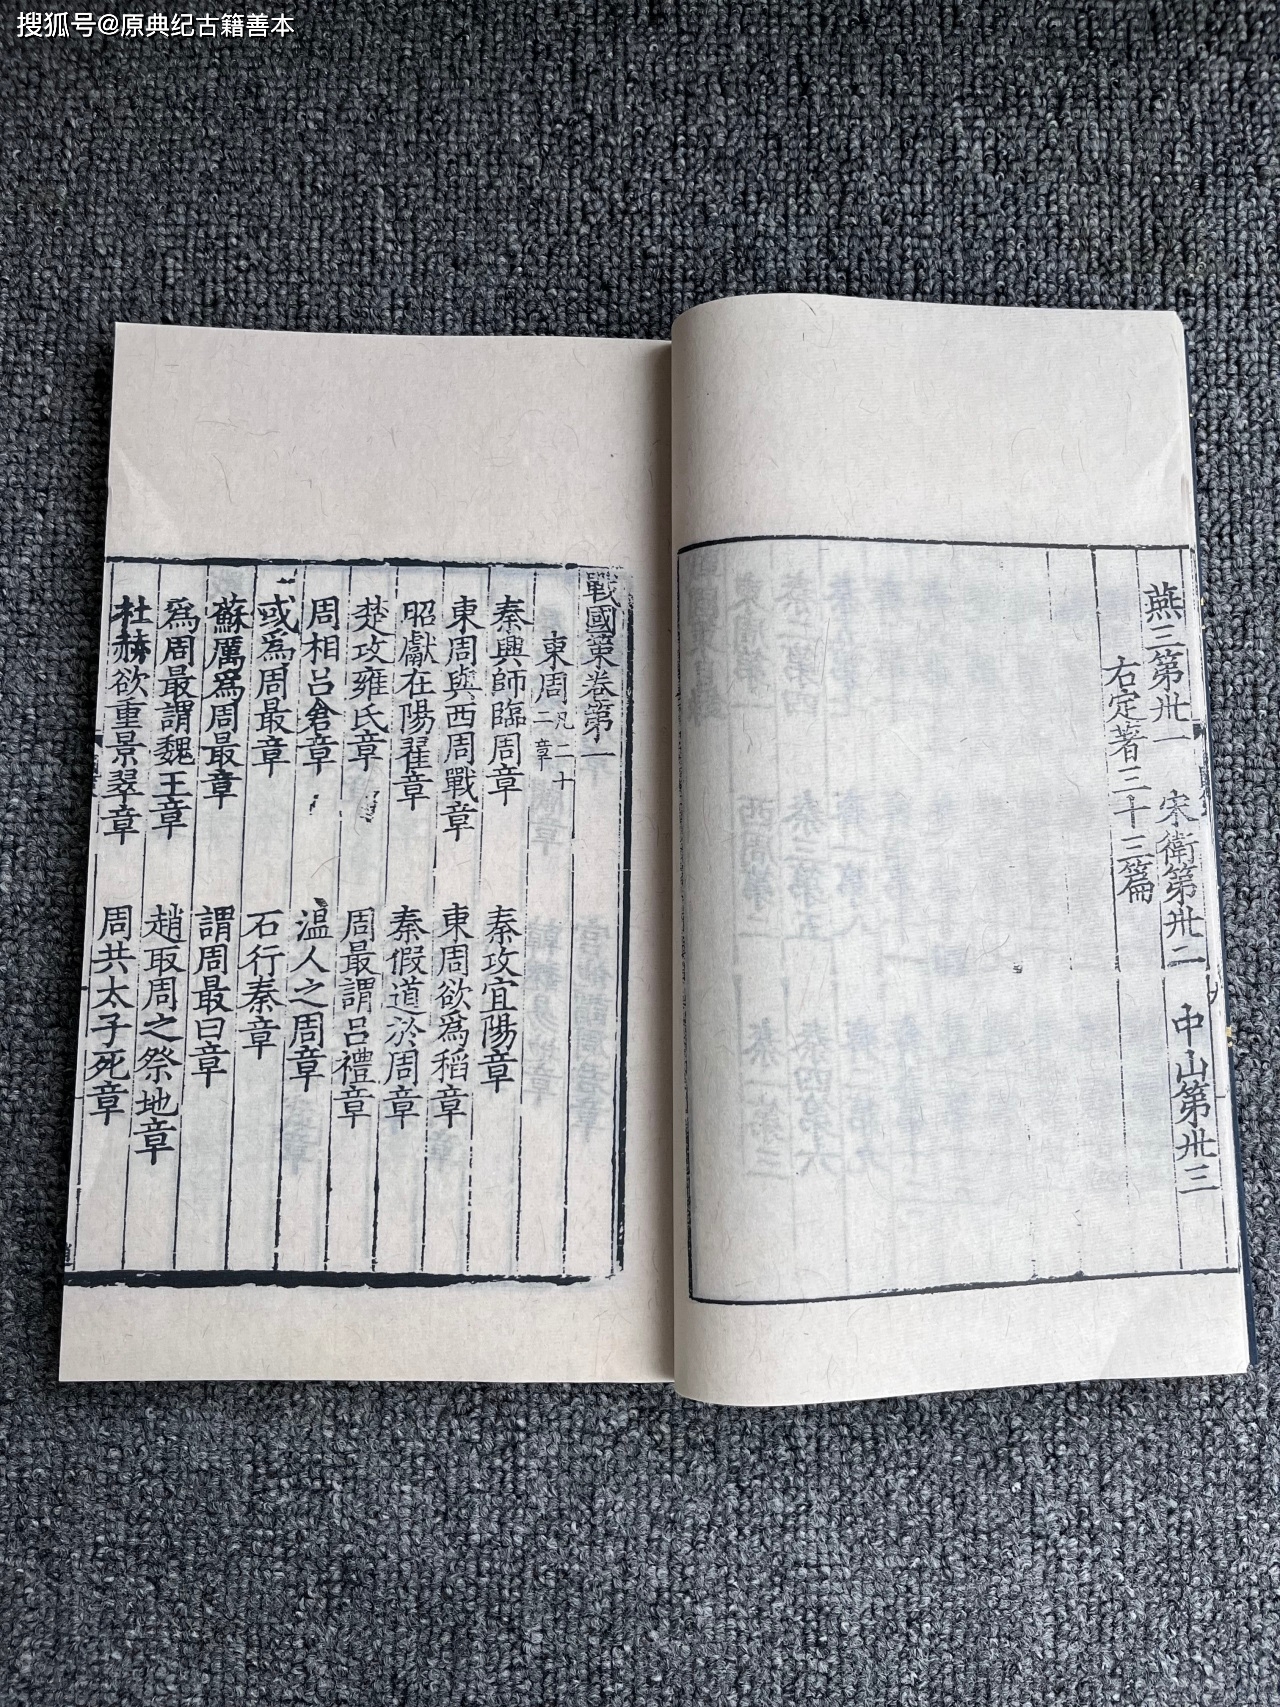 搜狐号@原典纪古籍善本
燕三第卅一　宋衛第卅二　中山第卅三
右定著三十三篇
戰國策卷第一
東周凡二十二章
秦興師臨周章　秦攻宜陽章
東周與西周戰章　東周欲爲稻章
昭獻在陽翟章　秦假道於周章
楚攻雍氏章　周最謂呂禮章
周相呂倉章　温人之周章
或爲周最章　石行秦章
蘇厲爲周最章　謂周最曰章
爲周最謂魏王章　趙取周之祭地章
杜赫欲重景翠章　周共太子死章